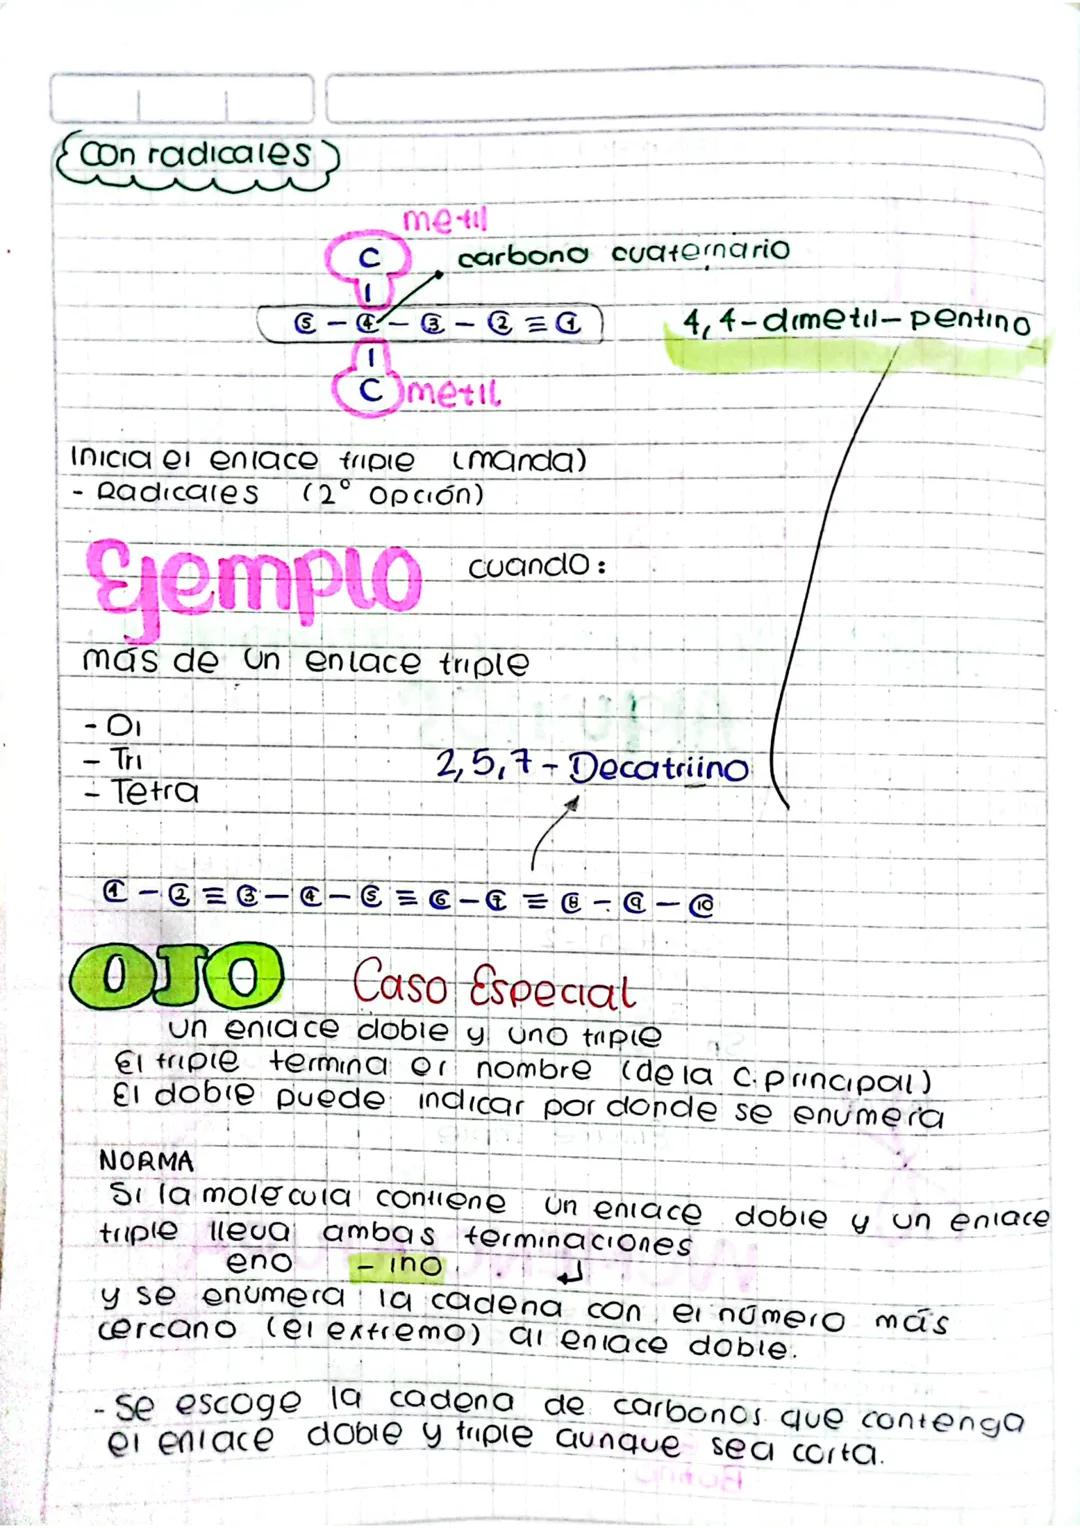 Con radicales
metil
C carbono cuaternario
5 - 4 - 3 - 2 ≡ 1 4,4-dimetil-pentino
C metil
Inicia el enlace triple (manda)
- Radicales (2° opción)
Ejemplo cuando:
más de un enlace triple
- Di
- Tri
- Tetra
2,5,7 - Decatriino
1 - 2 ≡ 3 - 4 - 5 ≡ 6 - 7 ≡ 8 - 9 - 10
OJO Caso Especial
un enlace doble y uno triple
El triple termina el nombre (de la C. principal)
El doble puede indicar por donde se enumera
NORMA
Si la molecula contiene un enlace doble y un enlace
triple lleva ambas terminaciones
eno - ino
y se enumera la cadena con el número más
cercano (el extremo) al enlace doble.
- Se escoge la cadena de carbonos que contenga
el enlace doble y triple aunque sea corta.